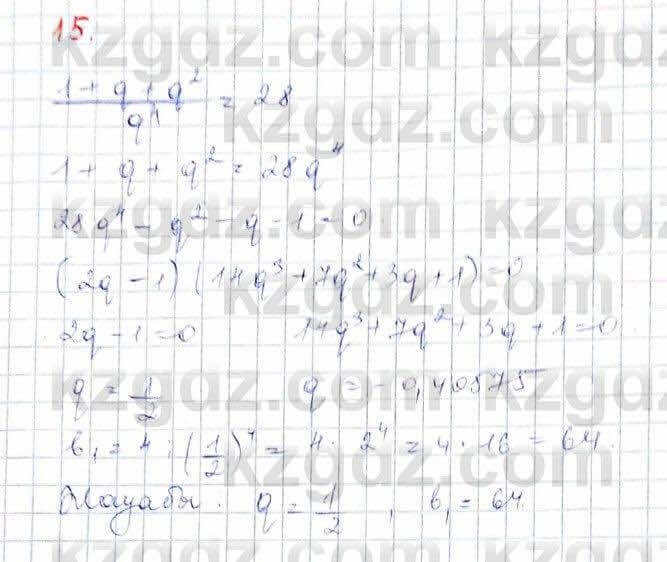 15.
(1 + q + q²)/q⁴ = 28
1 + q + q² = 28q⁴
28q⁴ - q² - q - 1 = 0
(2q - 1)(14q³ + 7q² + 3q + 1) = 0
2q - 1 = 0 14q³ + 7q² + 3q + 1 = 0
q = 1/2 q = -0,40575
b₁ = 4 : (1/2)⁴ = 4 · 2⁴ = 4 · 16 = 64.
Жауабы: q = 1/2, b₁ = 64
kzgdz.com
kzgdz.com
kzgdz.com
kzgdz.com
kzgdz.com
kzgdz.com
kzgdz.com